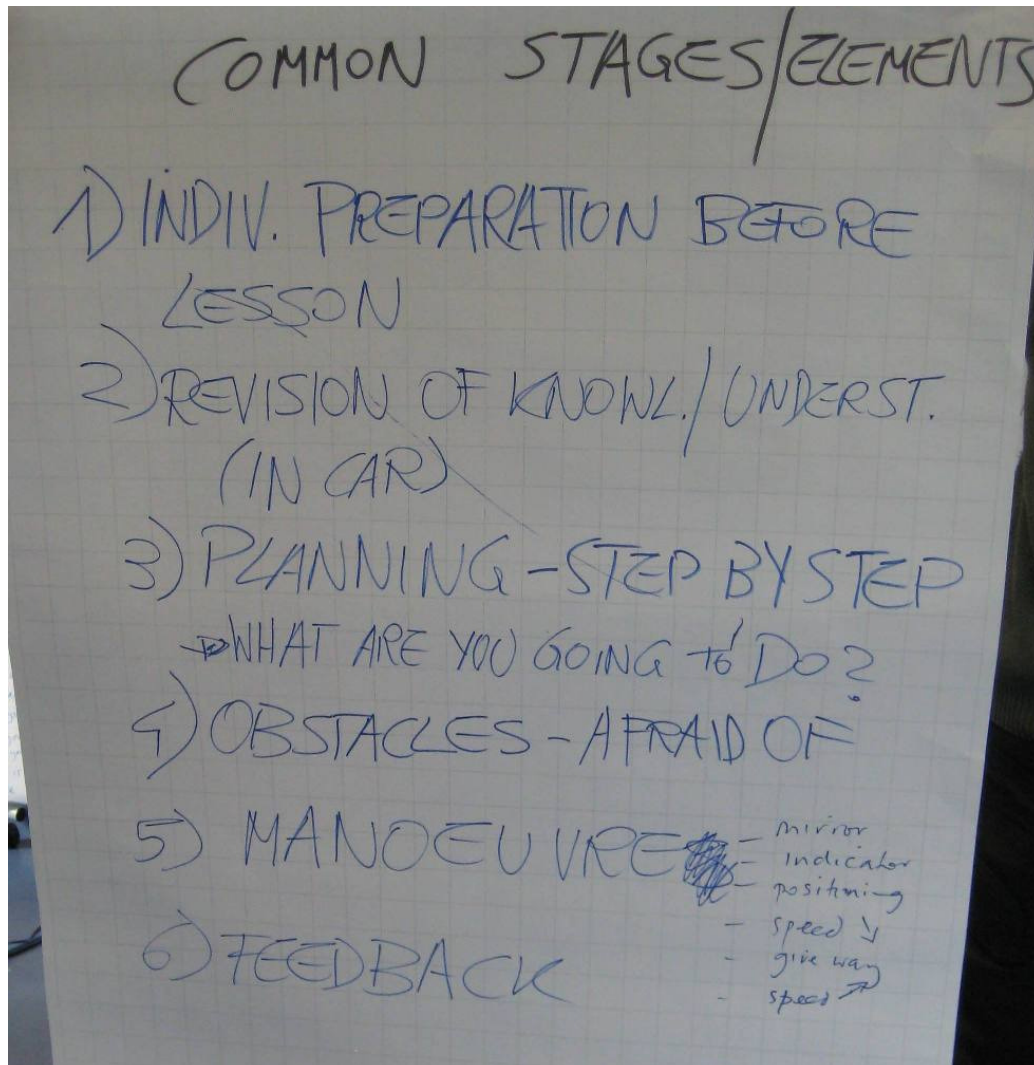 COMMON STAGES/ELEMENTS
1) INDIV. PREPARATION BEFORE
LESSON
2) REVISION OF KNOWL./UNDERST.
(IN CAR)
3) PLANNING - STEP BY STEP
→ WHAT ARE YOU GOING TO DO?
4) OBSTACLES - AFRAID OF
5) MANOEUVRE
- mirror
- indicator
- positioning
- speed ↘
- give way
- speed ↗
6) FEEDBACK